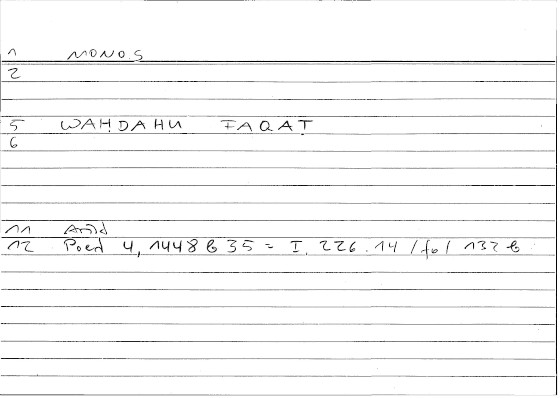 1 MONOS
2
5 WAHDAHU FAQAT
6
11 Arist
12 Poet 4, 1448 b 35 = I. 226.14 / fol 132 b